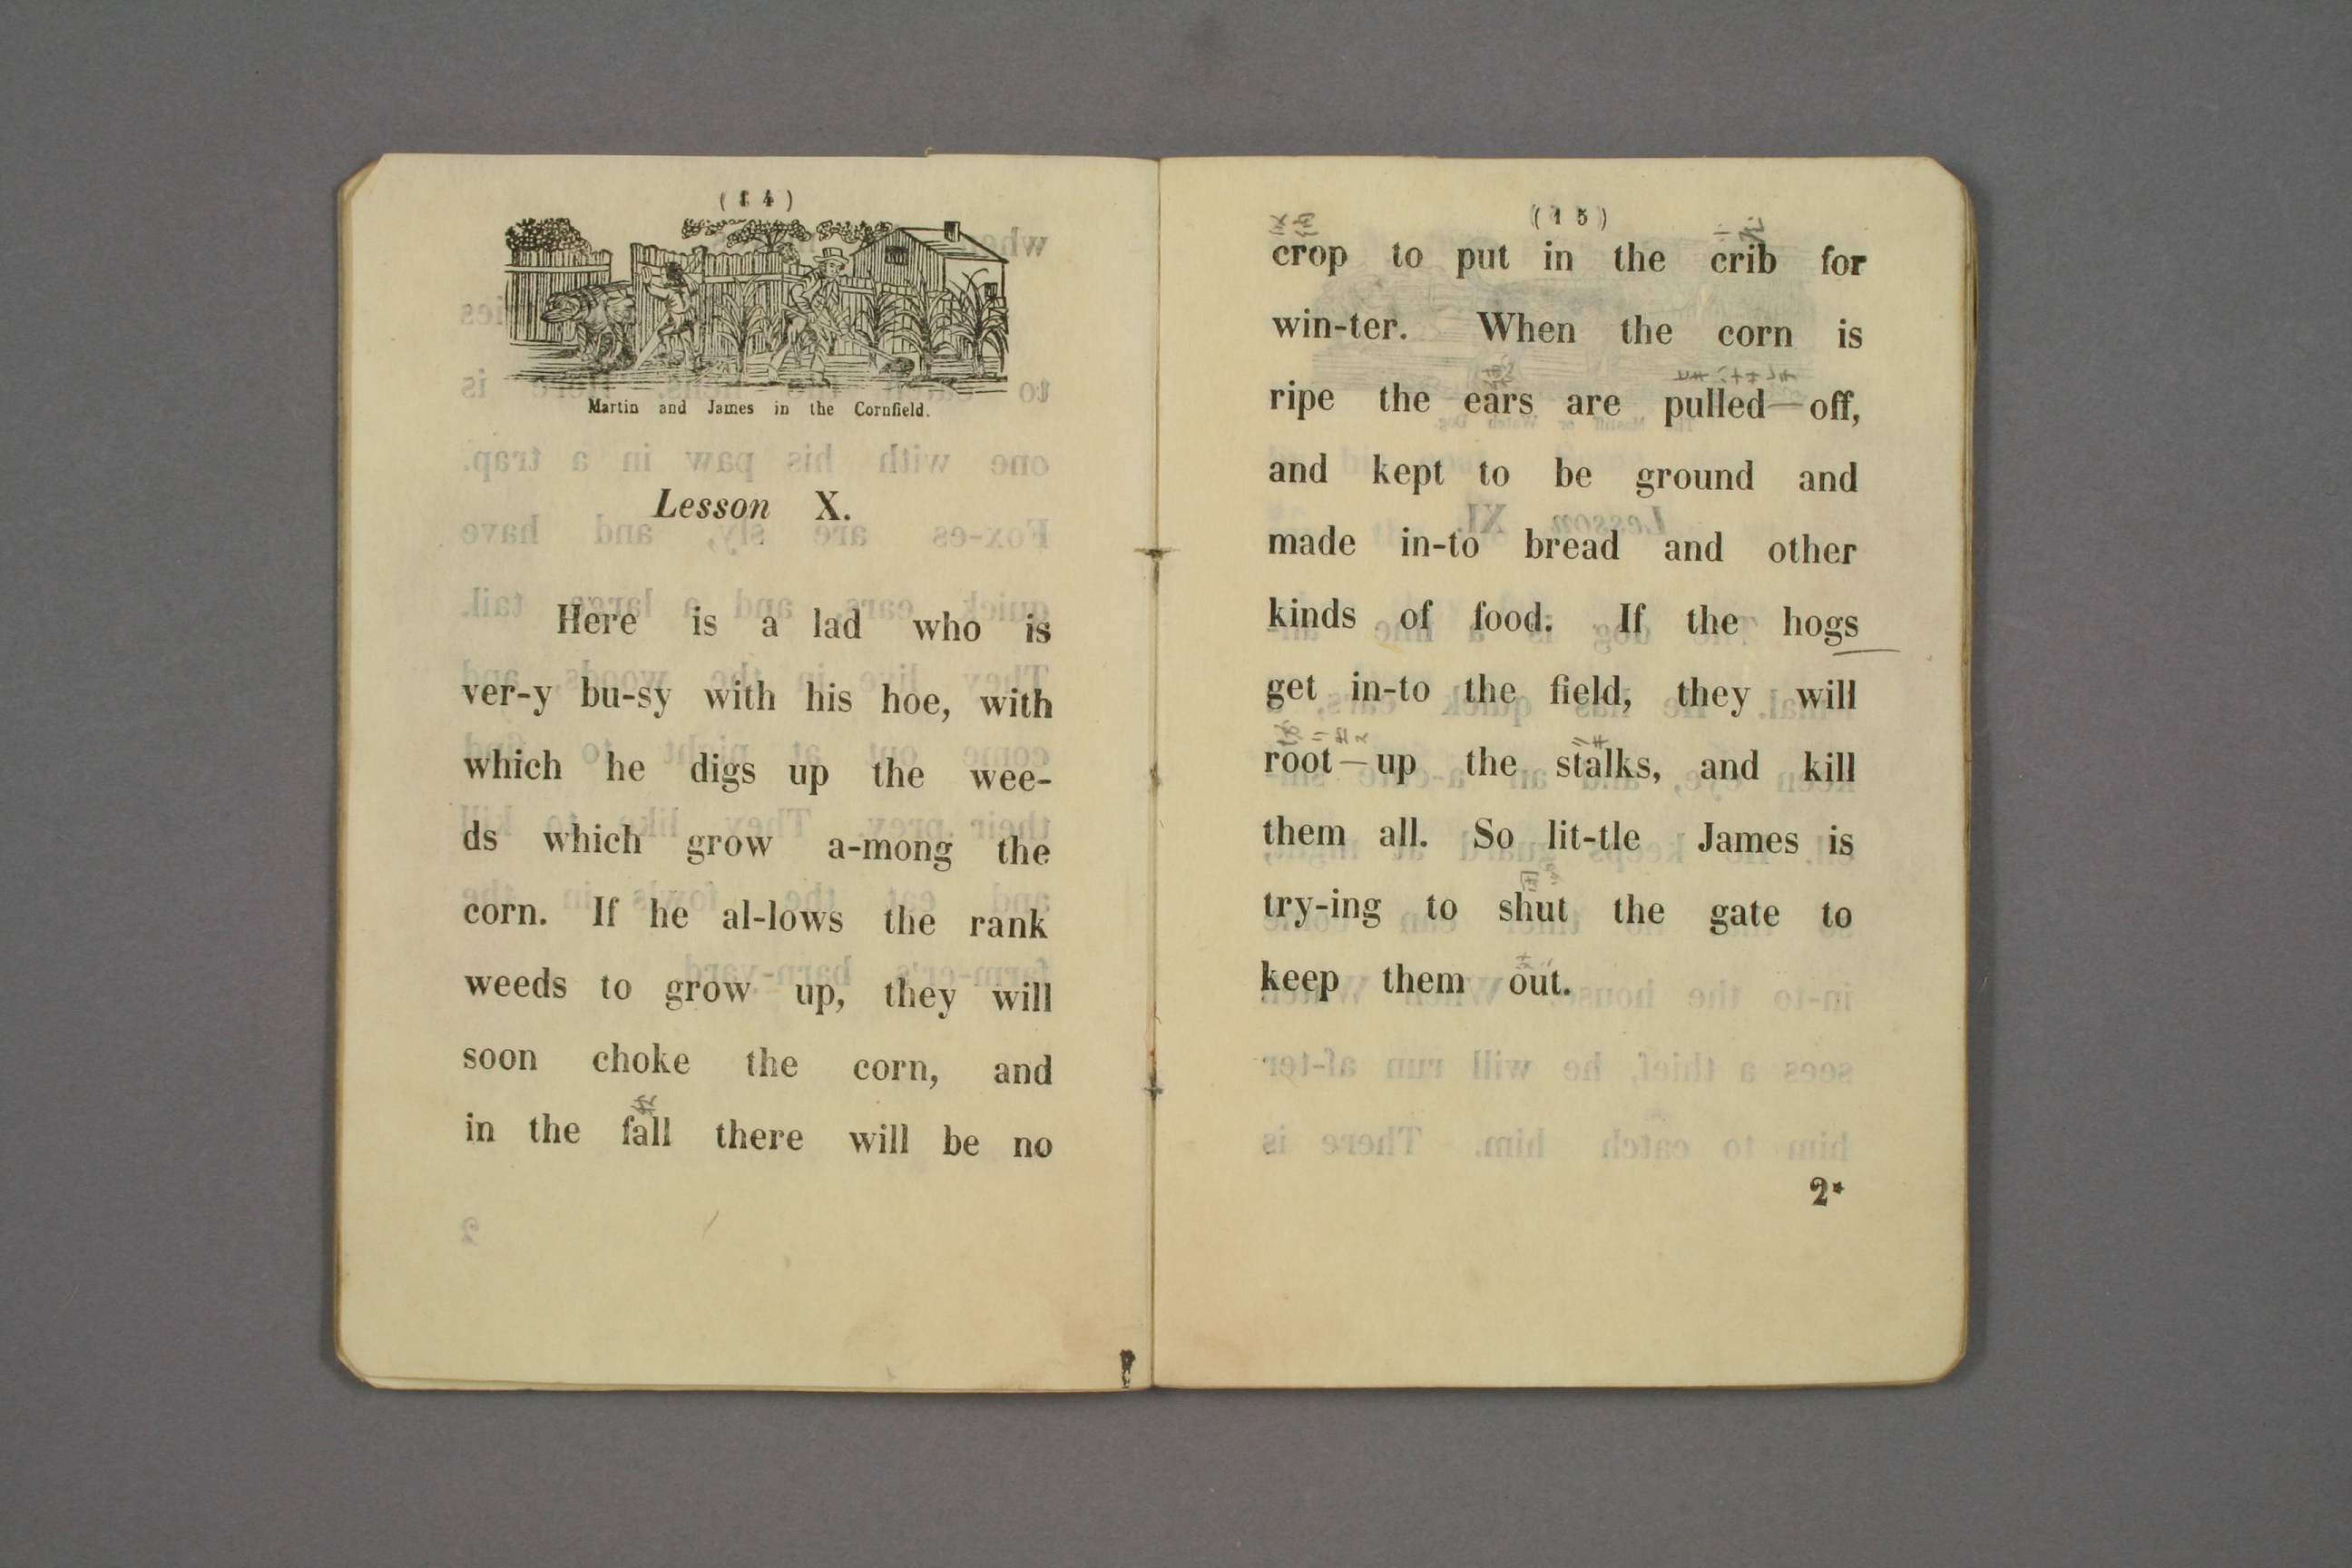 (14)
Martin and James in the Cornfield.
Lesson X.
Here is a lad who is
ver-y bu-sy with his hoe, with
which he digs up the wee-
ds which grow a-mong the
corn. If he al-lows the rank
weeds to grow up, they will
soon choke the corn, and
in the fall there will be no
2
(15)
crop to put in the crib for
win-ter. When the corn is
ripe the ears are pulled—off,
and kept to be ground and
made in-to bread and other
kinds of food. If the hogs
get in-to the field, they will
root—up the stalks, and kill
them all. So lit-tle James is
try-ing to shut the gate to
keep them out.
2*